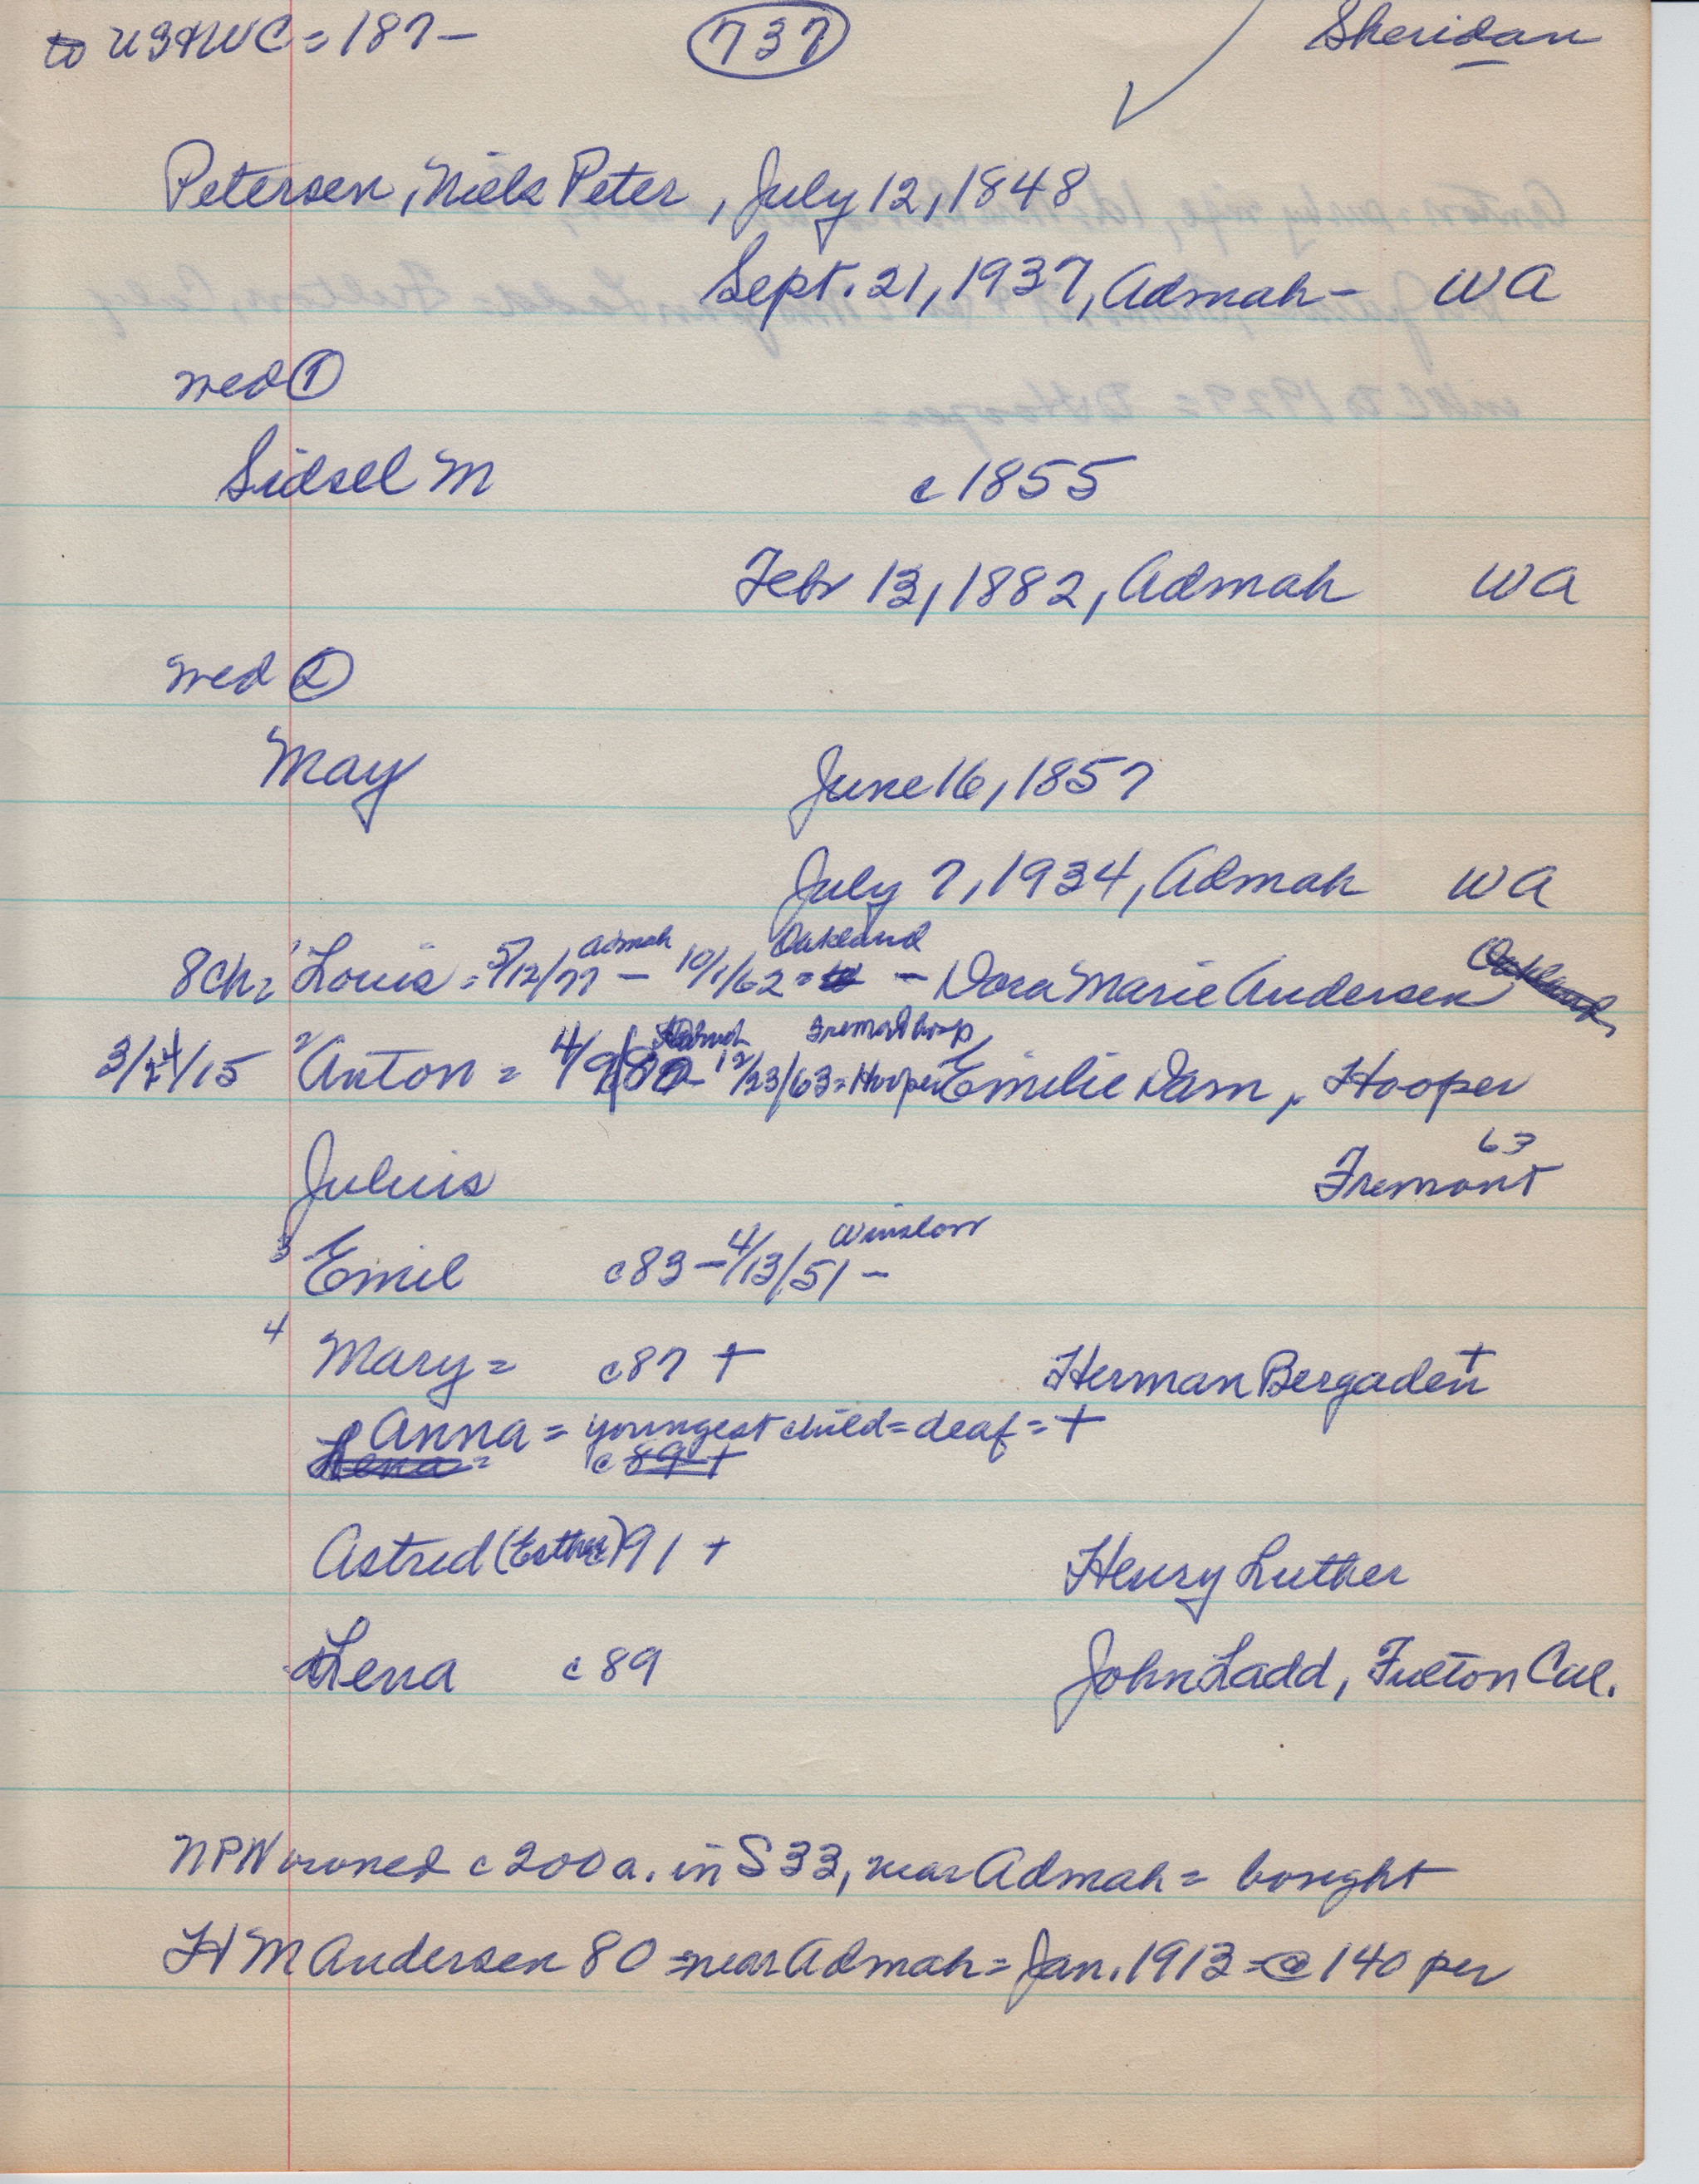 to US & WC = 187- 737 Sheridan
Petersen, Niels Peter, July 12, 1848
Sept. 21, 1937, Admah - WA
med ①
Sidsel M c 1855
Febr 13, 1882, Admah WA
med ②
May June 16, 1857
July 7, 1934, Admah WA
Admah Oakland
8 ch = 1 Louis = 5/12/77 - 10/1/62 = - Dora Marie Andersen Oakland
Fremont hosp
3/24/15 2 Anton = 4/9/80 - 12/23/63 = Hooper Emilie Dam, Hooper
63
Julius Fremont
Winslow
3 Emil c83 - 4/13/51 -
4 Mary = c87 + Herman Bergadett +
Anna = youngest child = deaf = +
Lena = c 89 +
Astred (Esther) 91 + Henry Luther
Lena c 89 John Ladd, Fulton Cal.
NPN owned c 200 a. in S 33, near Admah = bought
H M Andersen 80 = near Admah = Jan. 1913 = @ 140 per